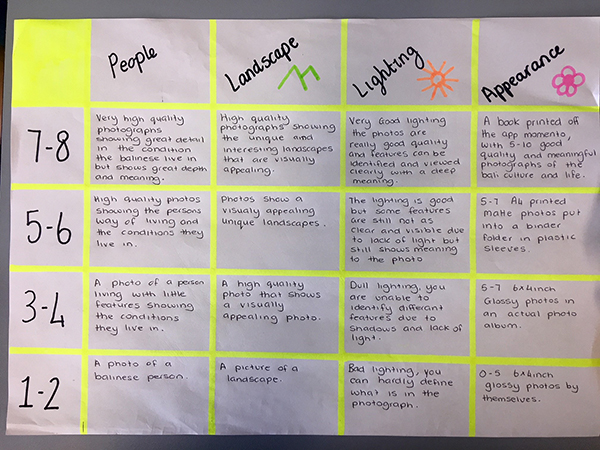 People
Landscape
Lighting
Appearance
7-8
Very high quality
photographs
showing great detail
in the condition
the balinese live in
but shows great depth
and meaning.
High quality
photographs showing
the unique and
interesting landscapes
that are visually
appealing.
Very Good lighting
the photos are
really good quality
and features can be
identified and viewed
clearly with a deep
meaning.
A book printed off
the app momento,
with 5-10 good
quality and meaningful
photographs of the
bali culture and life.
5-6
High quality photos
showing the persons
way of living and
the conditions they
live in.
Photos show a
visually appealing
unique landscapes.
The lighting is good
but some features
are still not as
clear and visible due
to lack of light but
still shows meaning
to the photo
5-7 A4 printed
matte photos put
into a binder
folder in plastic
sleeves.
3-4
A photo of a person
living with little
features showing
the conditions
they live in.
A high quality
photo that shows
a visually
appealing photo.
Dull lighting, you
are unable to
identify different
features due to
shadows and lack of
light.
5-7 6x4inch
Glossy photos in
an actual photo
album.
1-2
A photo of a
balinese person.
A picture of a
landscape.
Bad lighting, you
can hardly define
what is in the
photograph.
0-5 6x4inch
glossy photos by
themselves.